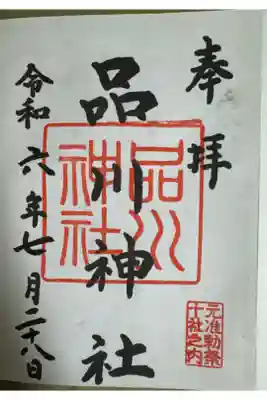 奉拝
品川神社
品川神社
元准勅祭
十社之内
令和六年七月二十八日